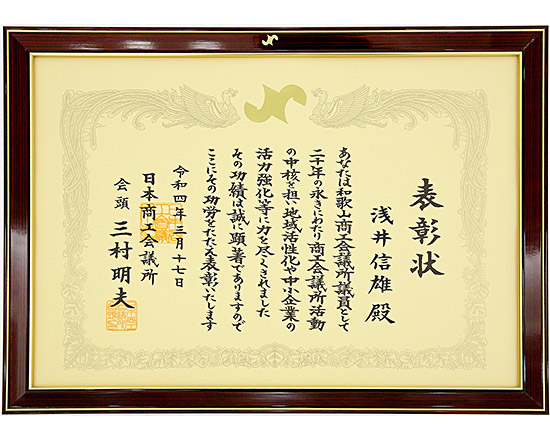 表彰状
浅井信雄 殿
あなたは和歌山商工会議所議員として
二十年の永きにわたり商工会議所活動
の中核を担い地域活性化や中小企業の
活力強化等に力を尽くされました
その功績は誠に顕著でありますので
ここにその功労をたたえ表彰いたします
令和四年三月十七日
日本商工会議所
会頭 三村明夫